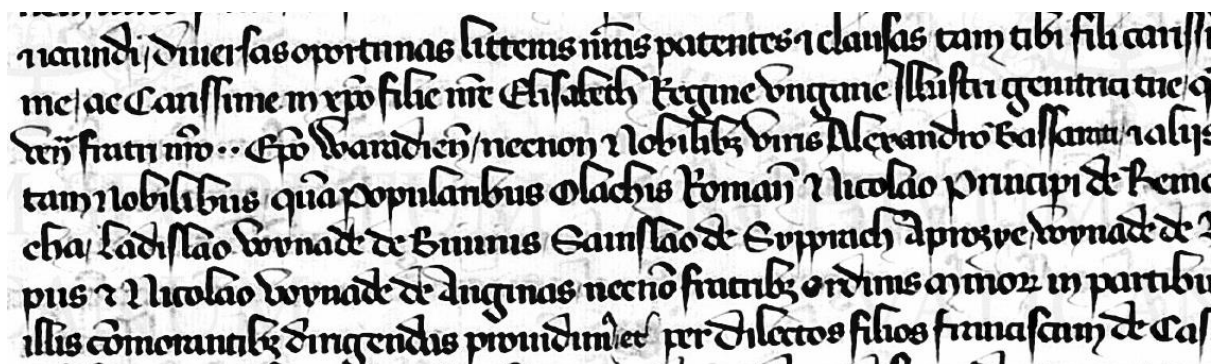 iocundi, diuersas oportunas litteras nr̃as patentes ⁊ clausas tam tibi fili carissi
me, ac Carissime in xp̃o filie nr̃e Elisabeth Regine Vngarie Illustri genitrici tue, q
ven̄ fratri nr̃o ·· Ep̃o Waradien̄, necnon Nobilibꝫ viris Alexandro Bassarati, ⁊ aliis
tam nobilibus, quã popularibus Olachis Roman̄ ⁊ Nicolao Principi de Reme
cha, Ladislao Voynade de Biuinis Sanislao de Sypprach Aprozye, Voynade de
pus ⁊ Nicolao Voynade de Auginas necnõ fratribꝫ ordinis minoꝝ in partibu
illis cõmorantibꝫ dirigendas prouidimꝰ, et per dilectos filios franciscum de Cas